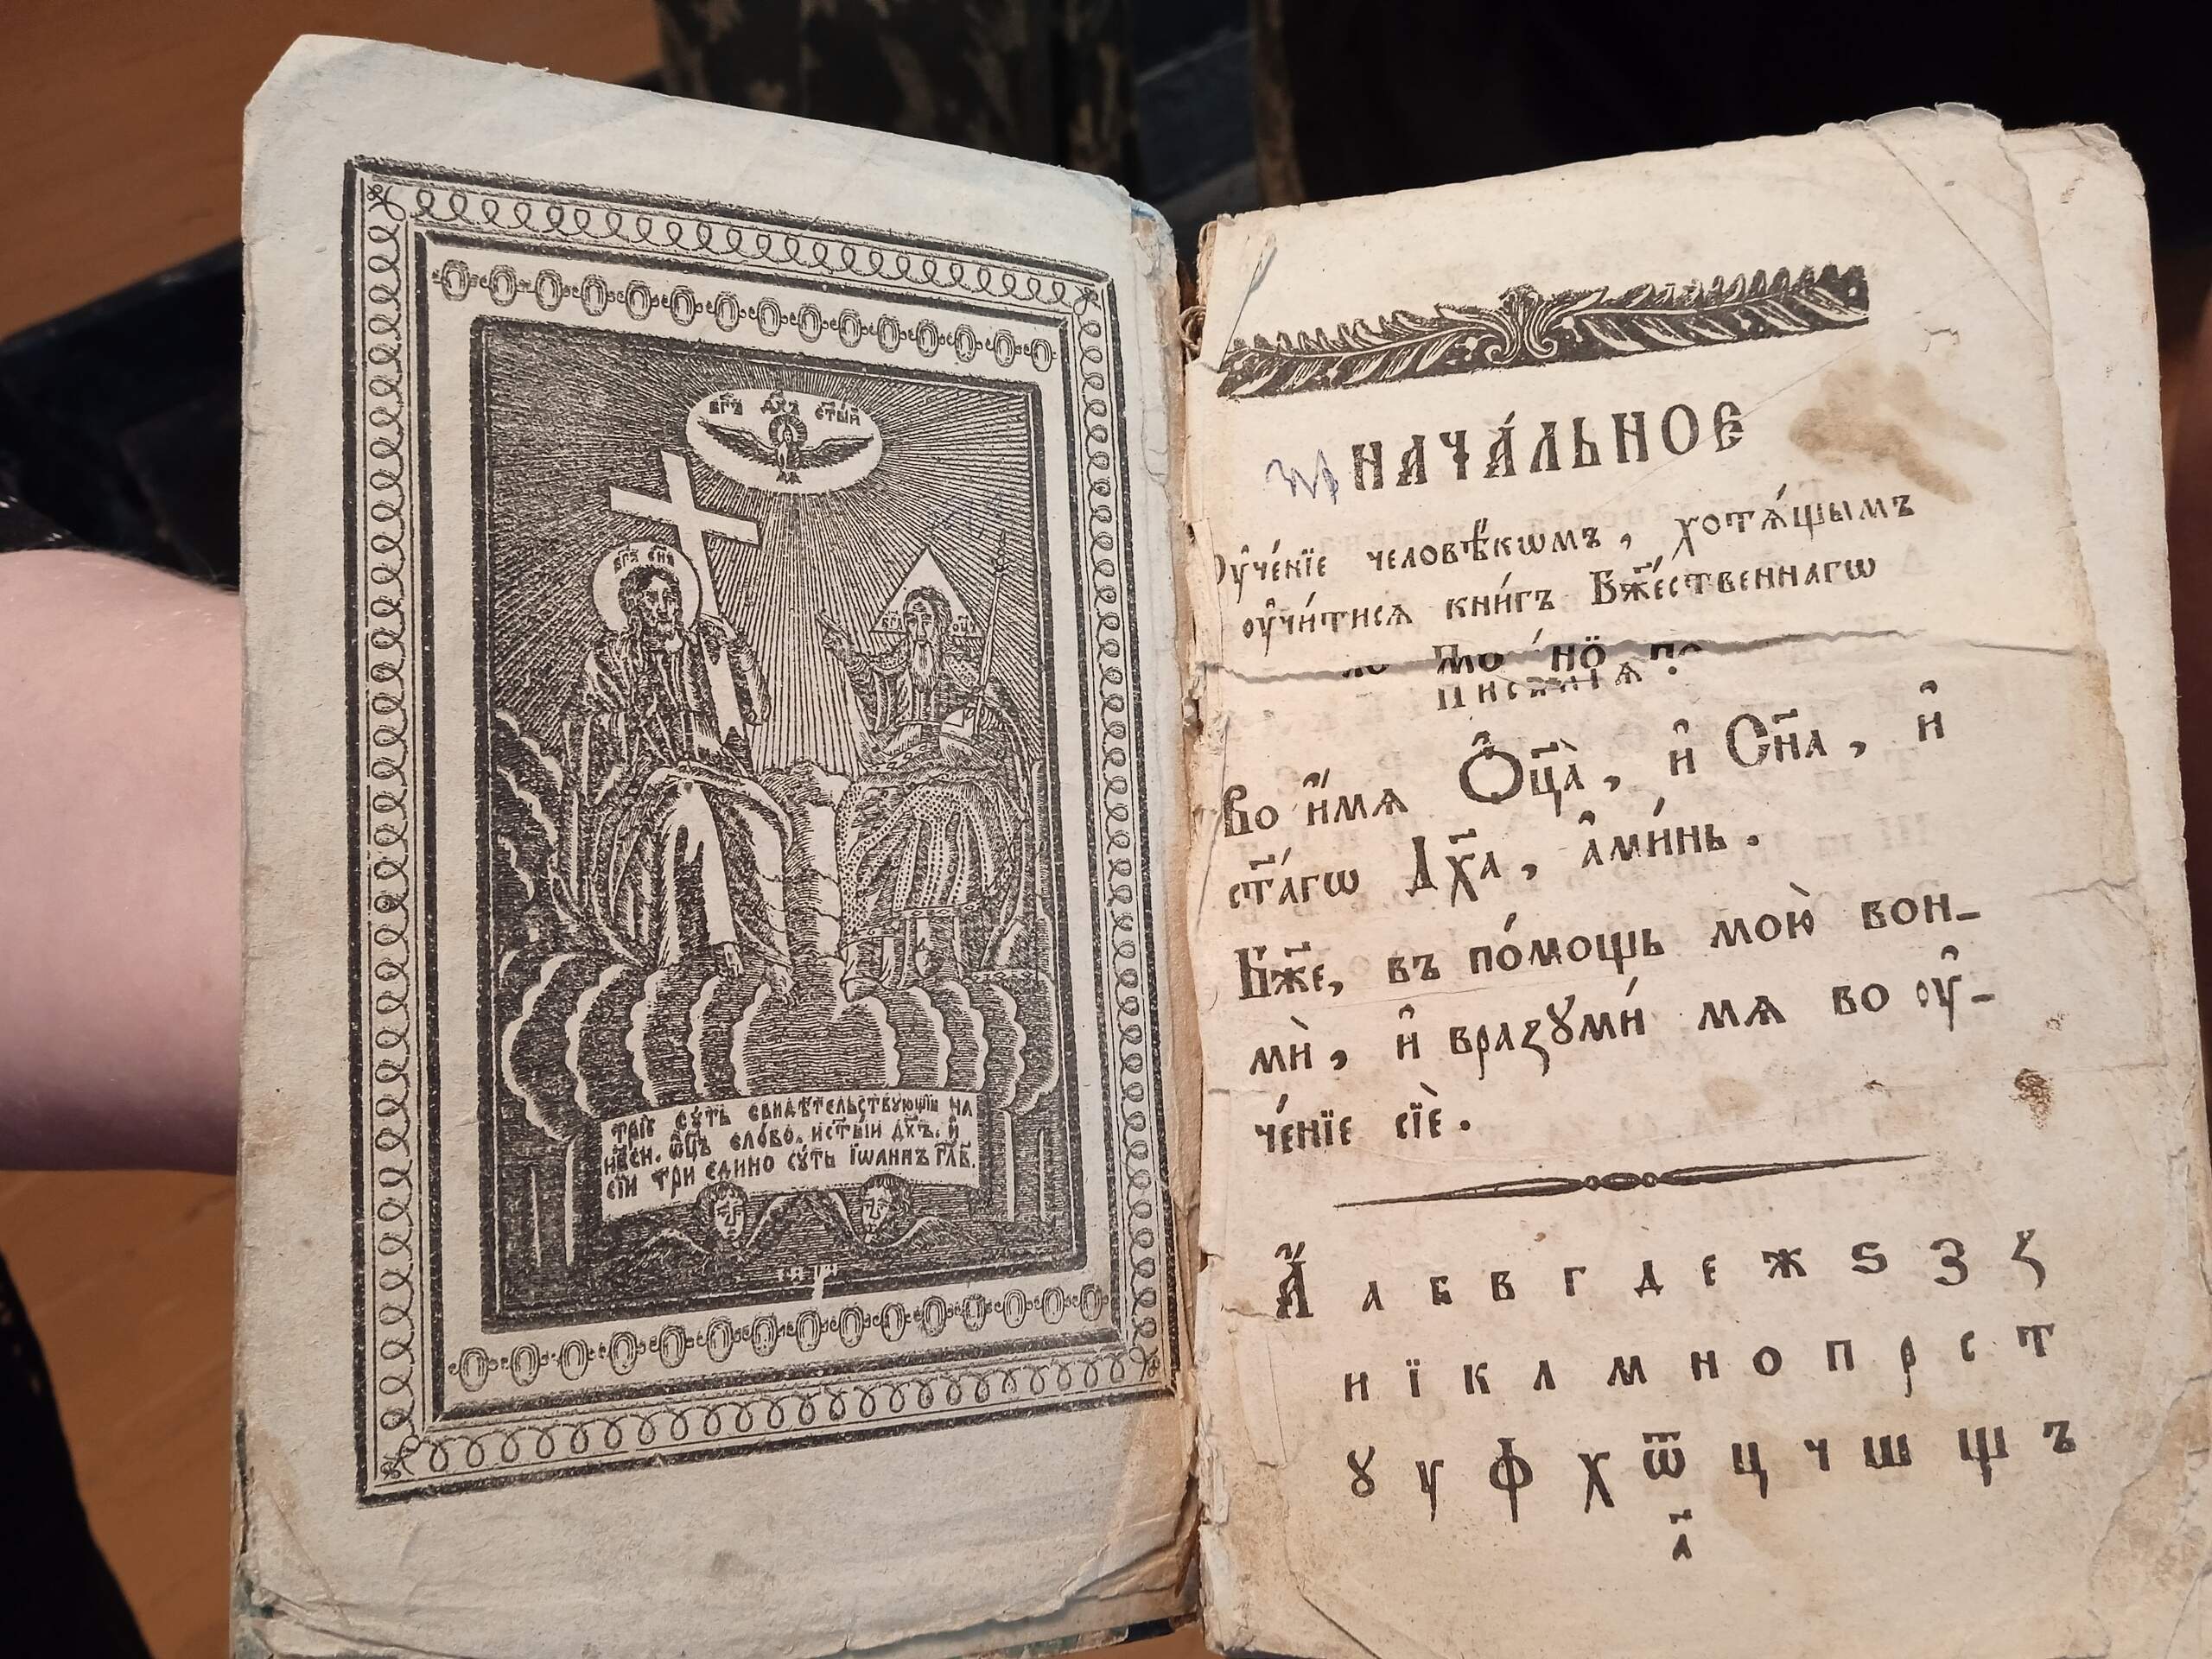 БГ҃Ъ ДХ҃Ъ СТ҃ЫЙ
БГ҃Ъ СН҃Ъ
БГ҃Ъ ОЦ҃Ъ
ТРІЕ СꙊТЬ СВИДѢТЕЛЬСТВꙊЮЩІИ НА
НБ҃СИ. ѺЦ҃Ъ СЛО́ВО. И СТ҃ЫИ ДХ҃Ъ. И҆
СІИ ТРИ ЕДИНО СꙊ́ТЬ ІѠАННЪ ГЛВ҃.
НАЧА́ЛЬНОЕ
Оу҆че́нїе человѣ́кѡмъ, хотѧ́щымъ
оу҆чи́тисѧ кни́гъ Бж҃е́ственнагѡ
Писанїѧ.
Во и҆́мѧ Ѻ҆ц҃а̀, и҆ Сн҃а, и҆
ст҃а́гѡ Дх҃а, а҆ми́нь.
Бж҃е, въ по́мощь мою̀ вон-
мѝ, и҆ вразꙋми́ мѧ во оу҆-
че́нїе сїѐ.
А҆́ а б в г д е ж ѕ З з
и ї к л м н о п р с т
ꙋ у ф х ѿ ц ч ш щ ъ
а҃